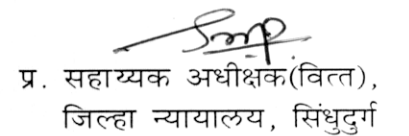 प्र. सहाय्यक अधीक्षक(वित्त),
जिल्हा न्यायालय, सिंधुदुर्ग